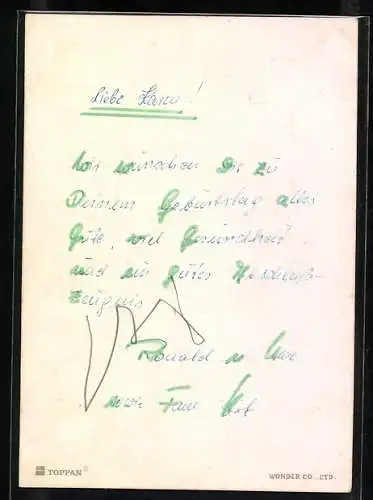 Liebe Karen!
Wir wünschen Dir zu
Deinem Geburtstag alles
Gute, viel Gesundheit
und ein gutes
zeugnis
Ronald u. Uwe
sowie Fam.
TOPPAN
WONDER CO., LTD.